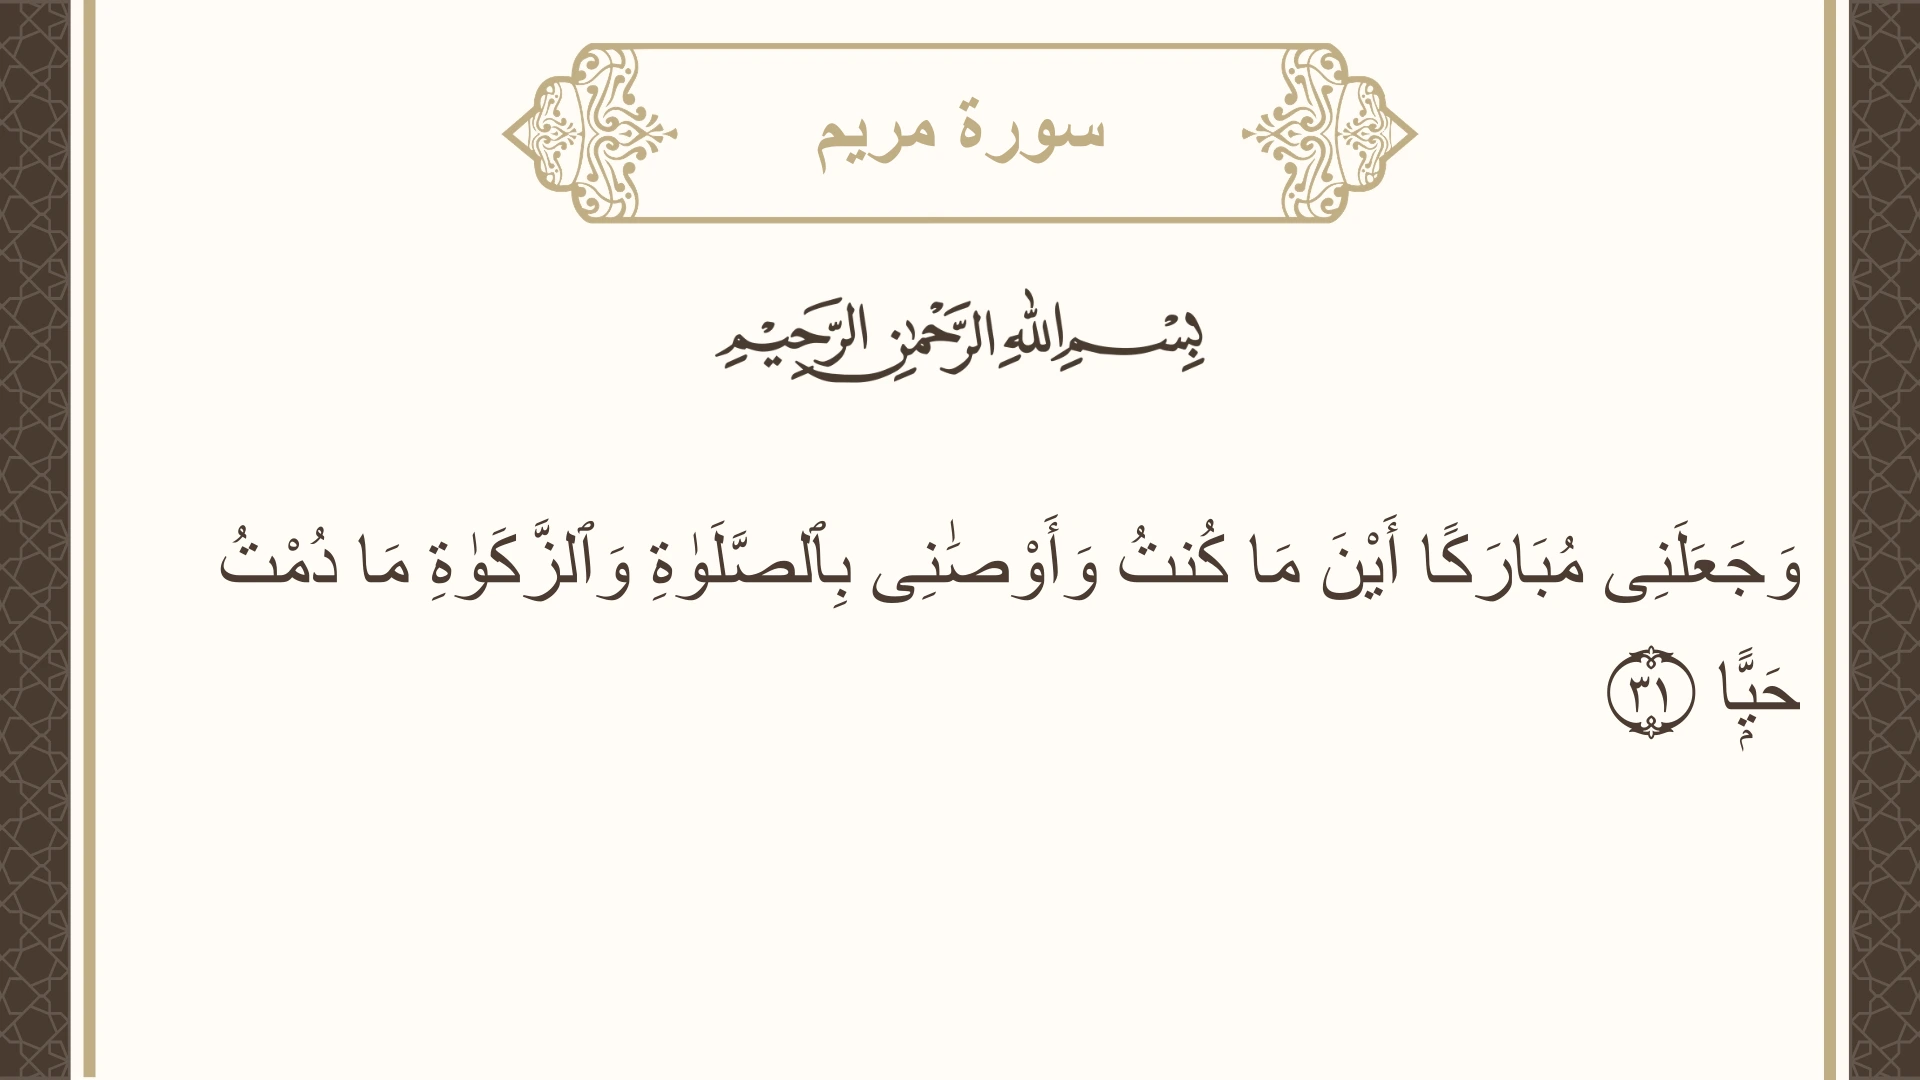 سورة مريم
بِسْمِ اللهِ الرَّحْمٰنِ الرَّحِيْمِ
وَجَعَلَنِى مُبَارَكًا أَيْنَ مَا كُنتُ وَأَوْصَٰنِى بِٱلصَّلَوٰةِ وَٱلزَّكَوٰةِ مَا دُمْتُ
حَيًّۭا ٣١